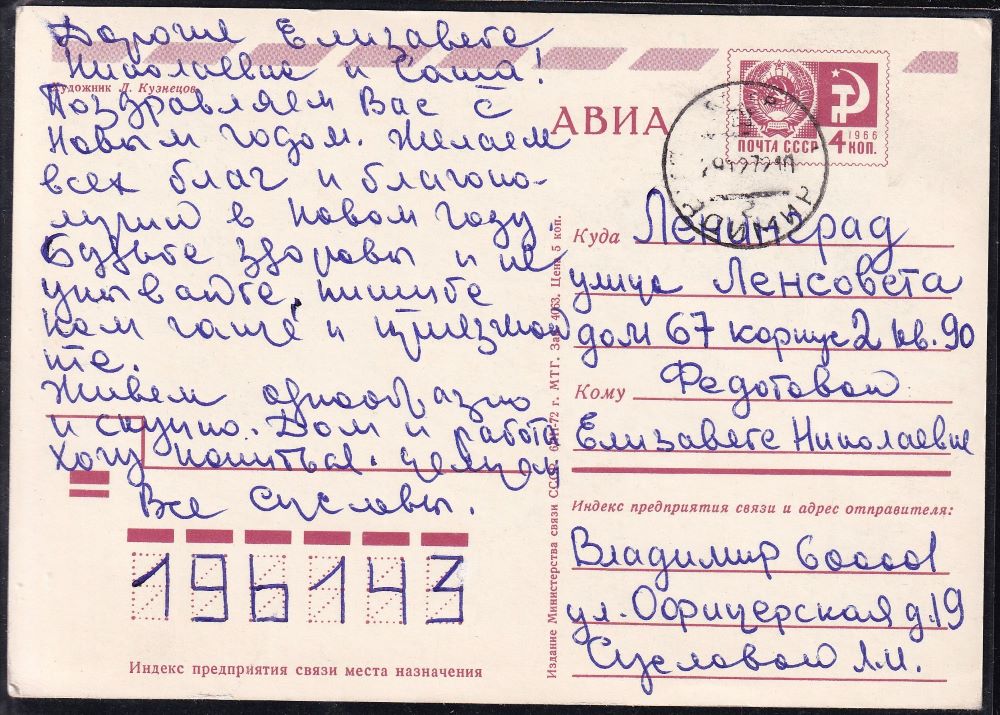 Дорогие Елизавета
Николаевна и Саша!
Художник Л. Кузнецов
Поздравляем Вас с
Новым годом. Желаем
всех благ и благопо-
лучия в Новом году.
Будьте здоровы и не
унывайте, пишите
нам чаще и приезжай
те.
Живем однообразно
и скучно. Дом и работа.
Хочу
Все Сусловы.
АВИА
ПОЧТА СССР
1966
4 КОП.
Куда Ленинград
улица Ленсовета
дом 67 корпус 2 кв. 90
Кому Федотовой
Елизавете Николаевне
Индекс предприятия связи и адрес отправителя:
Владимир 600001
ул. Офицерская д.19
Сусловой Л.И.
196143
Индекс предприятия связи места назначения
Издание Министерства связи СССР. 6/XII-72 г. МТГ. Зак. 4063. Цена 5 коп.